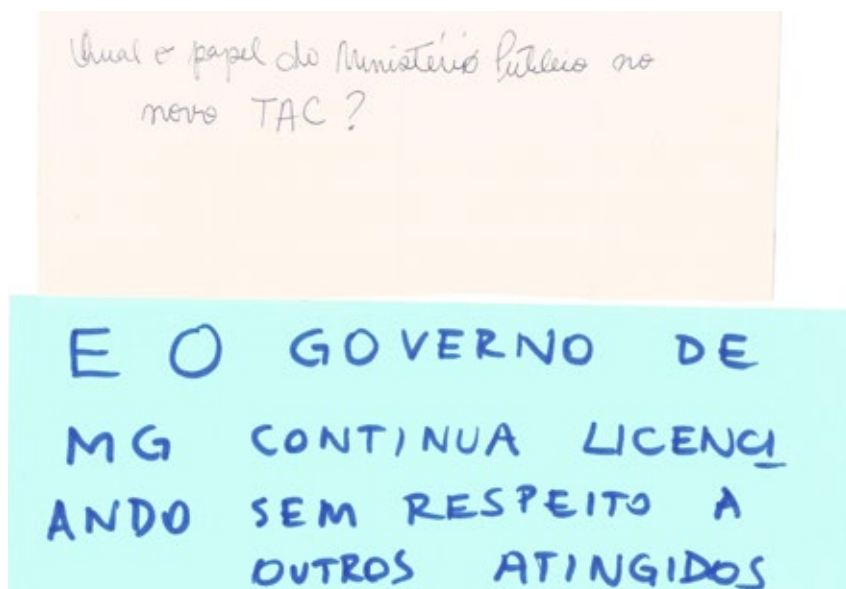 Qual o papel do Ministério Público no
novo TAC?
E O GOVERNO DE
MG CONTINUA LICENCI
ANDO SEM RESPEITO A
OUTROS ATINGIDOS